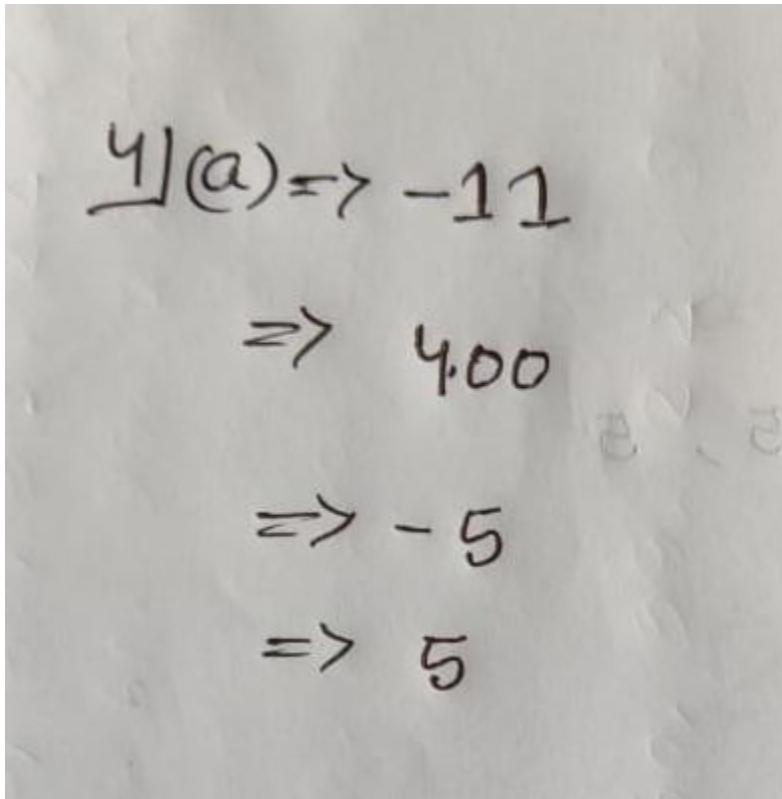 4](a) => -11
=> 4.00
=> -5
=> 5